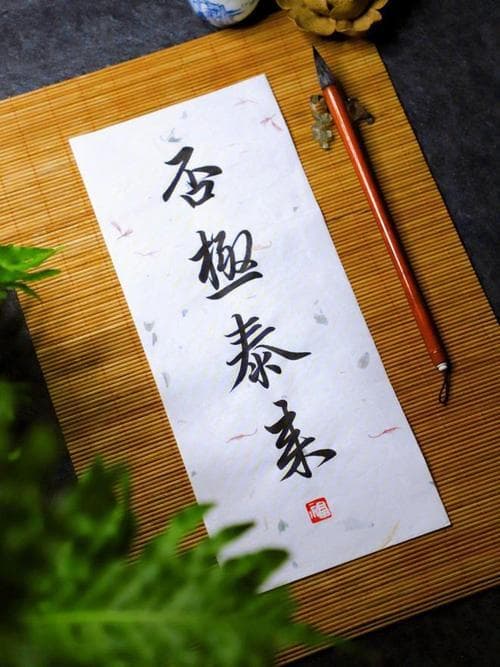 否極泰来
福